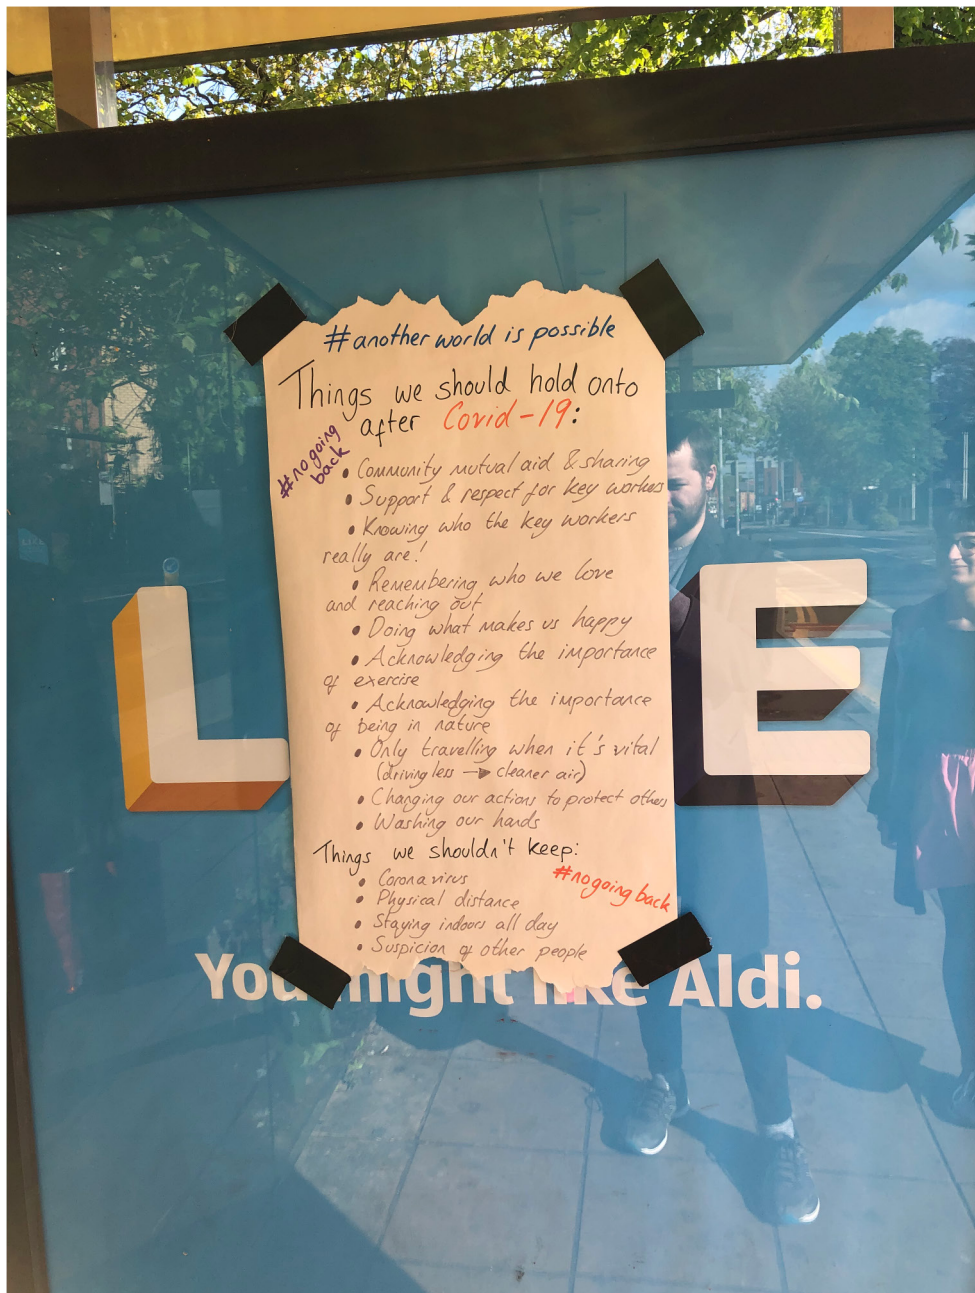 #another world is possible
Things we should hold onto
after Covid-19:
#no going
back
• Community mutual aid & sharing
• Support & respect for key workers
• Knowing who the key workers
really are!
• Remembering who we love
and reaching out
• Doing what makes us happy
• Acknowledging the importance
of exercise
• Acknowledging the importance
of being in nature
• Only travelling when it's vital
(driving less → cleaner air)
• Changing our actions to protect others
• Washing our hands
Things we shouldn't keep:
• Coronavirus
• Physical distance
• Staying indoors all day
• Suspicion of other people
#no going back
L E
You might like Aldi.